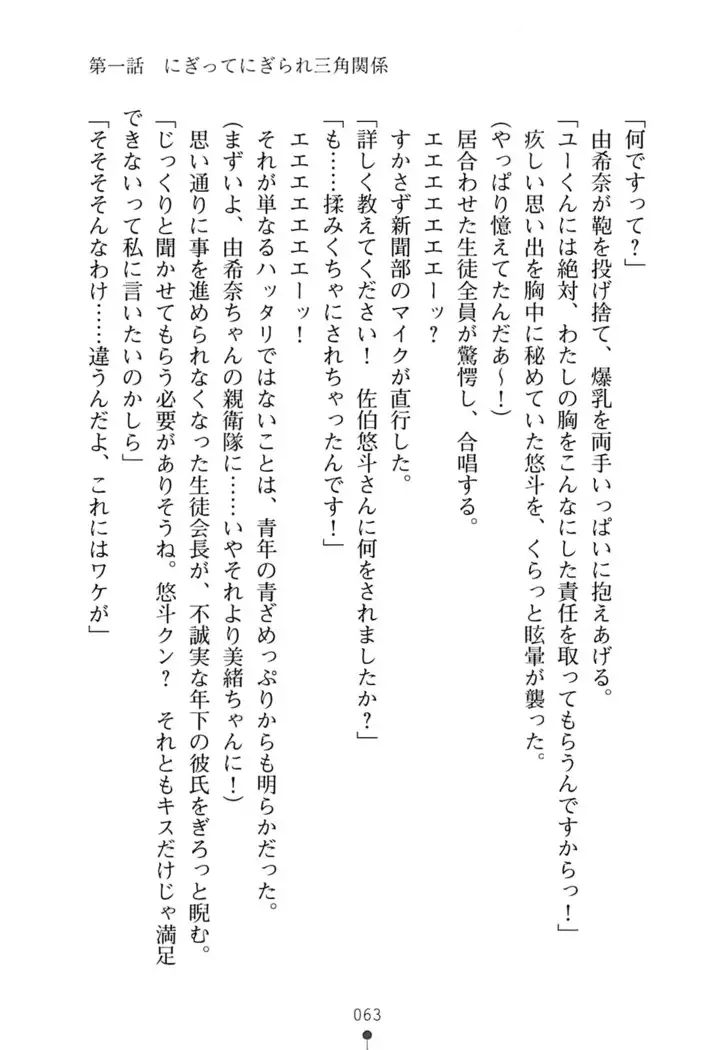 第一話　にぎってにぎられ三角関係
「何ですって？」
由希奈が鞄を投げ捨て、爆乳を両手いっぱいに抱えあげる。
「ユーくんには絶対、わたしの胸をこんなにした責任を取ってもらうんですからっ！」
疚しい思い出を胸中に秘めていた悠斗を、くらっと眩暈が襲った。
（やっぱり憶えてたんだぁ～！）
居合わせた生徒全員が驚愕し、合唱する。
エエエエエエーッ？
すかさず新聞部のマイクが直行した。
「詳しく教えてください！　佐伯悠斗さんに何をされましたか？」
「も……揉みくちゃにされちゃったんです！」
エエエエエエエーッ！
それが単なるハッタリではないことは、青年の青ざめっぷりからも明らかだった。
（まずいよ、由希奈ちゃんの親衛隊に……いやそれより美緒ちゃんに！）
思い通りに事を進められなくなった生徒会長が、不誠実な年下の彼氏をぎろっと睨む。
「じっくりと聞かせてもらう必要がありそうね。悠斗クン？　それともキスだけじゃ満足
できないって私に言いたいのかしら」
「そそそそんなわけ……違うんだよ、これにはワケが」
063